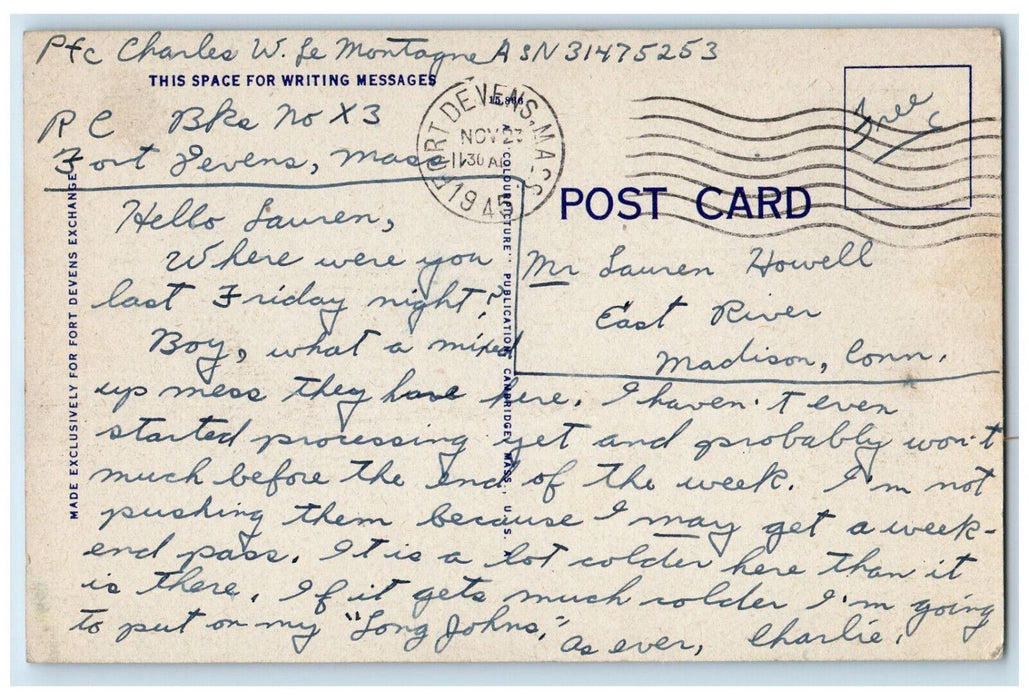 Pfc Charles W. Le Montagne ASN 31475253
THIS SPACE FOR WRITING MESSAGES
15,866
R C Bks No X3
Fort Devens, Mass
FORT DEVENS, MASS.
NOV 23
11 30 AM
1945
Free
POST CARD
Hello Lauren,
Where were you
last Friday night?
Boy, what a mixed
up mess they have here. I haven't even
started processing yet and probably won't
much before the end of the week. I'm not
pushing them because I may get a week-
end pass. It is a lot colder here than it
is there. If it gets much colder I'm going
to put on my "Long Johns."
As ever, Charlie.
Mr Lauren Howell
East River
Madison, Conn.
MADE EXCLUSIVELY FOR FORT DEVENS EXCHANGE
"COLOURPICTURE" PUBLICATION, CAMBRIDGE, MASS., U. S. A.